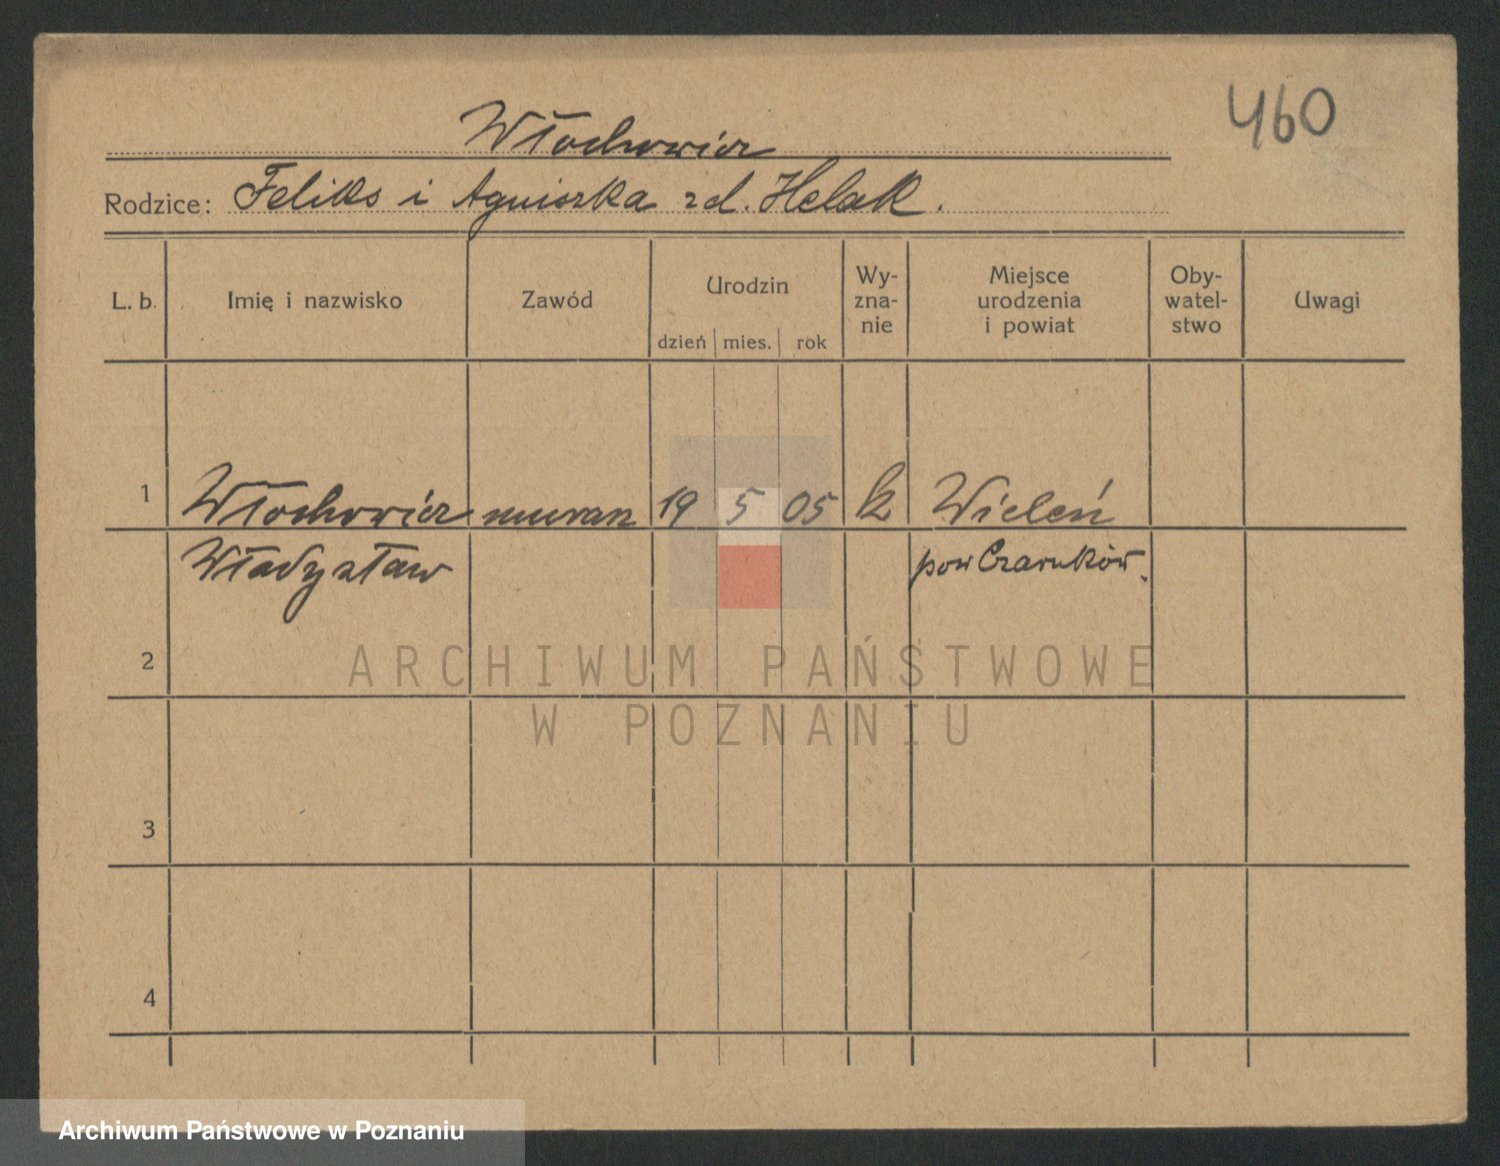 460
Włochowicz
Rodzice: Feliks i Agnieszka zd. Helak.
L. b. Imię i nazwisko Zawód Urodzin dzień mies. rok Wy-zna-nie Miejsce urodzenia i powiat Oby-watel-stwo Uwagi
1 Włochowicz murarz 19 5 05 k Wieleń
Władysław pow Czarnków.
2
ARCHIWUM PAŃSTWOWE
W POZNANIU
3
4
Archiwum Państwowe w Poznaniu